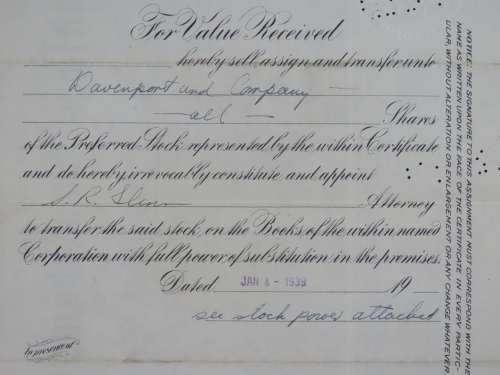 For Value Received
hereby sell, assign and transfer unto
Davenport and Company
all Shares
of the Preferred Stock represented by the within Certificate
and do hereby irrevocably constitute and appoint
S. R. Attorney
to transfer the said stock, on the Books of the within named
Corporation with full power of substitution in the premises.
Dated, JAN 4 - 1939 19
see stock power attached
NOTICE: THE SIGNATURE TO THIS ASSIGNMENT MUST CORRESPOND WITH THE
NAME AS WRITTEN UPON THE FACE OF THE CERTIFICATE IN EVERY PARTIC-
ULAR, WITHOUT ALTERATION OR ENLARGEMENT OR ANY CHANGE WHATEVER
In presence of